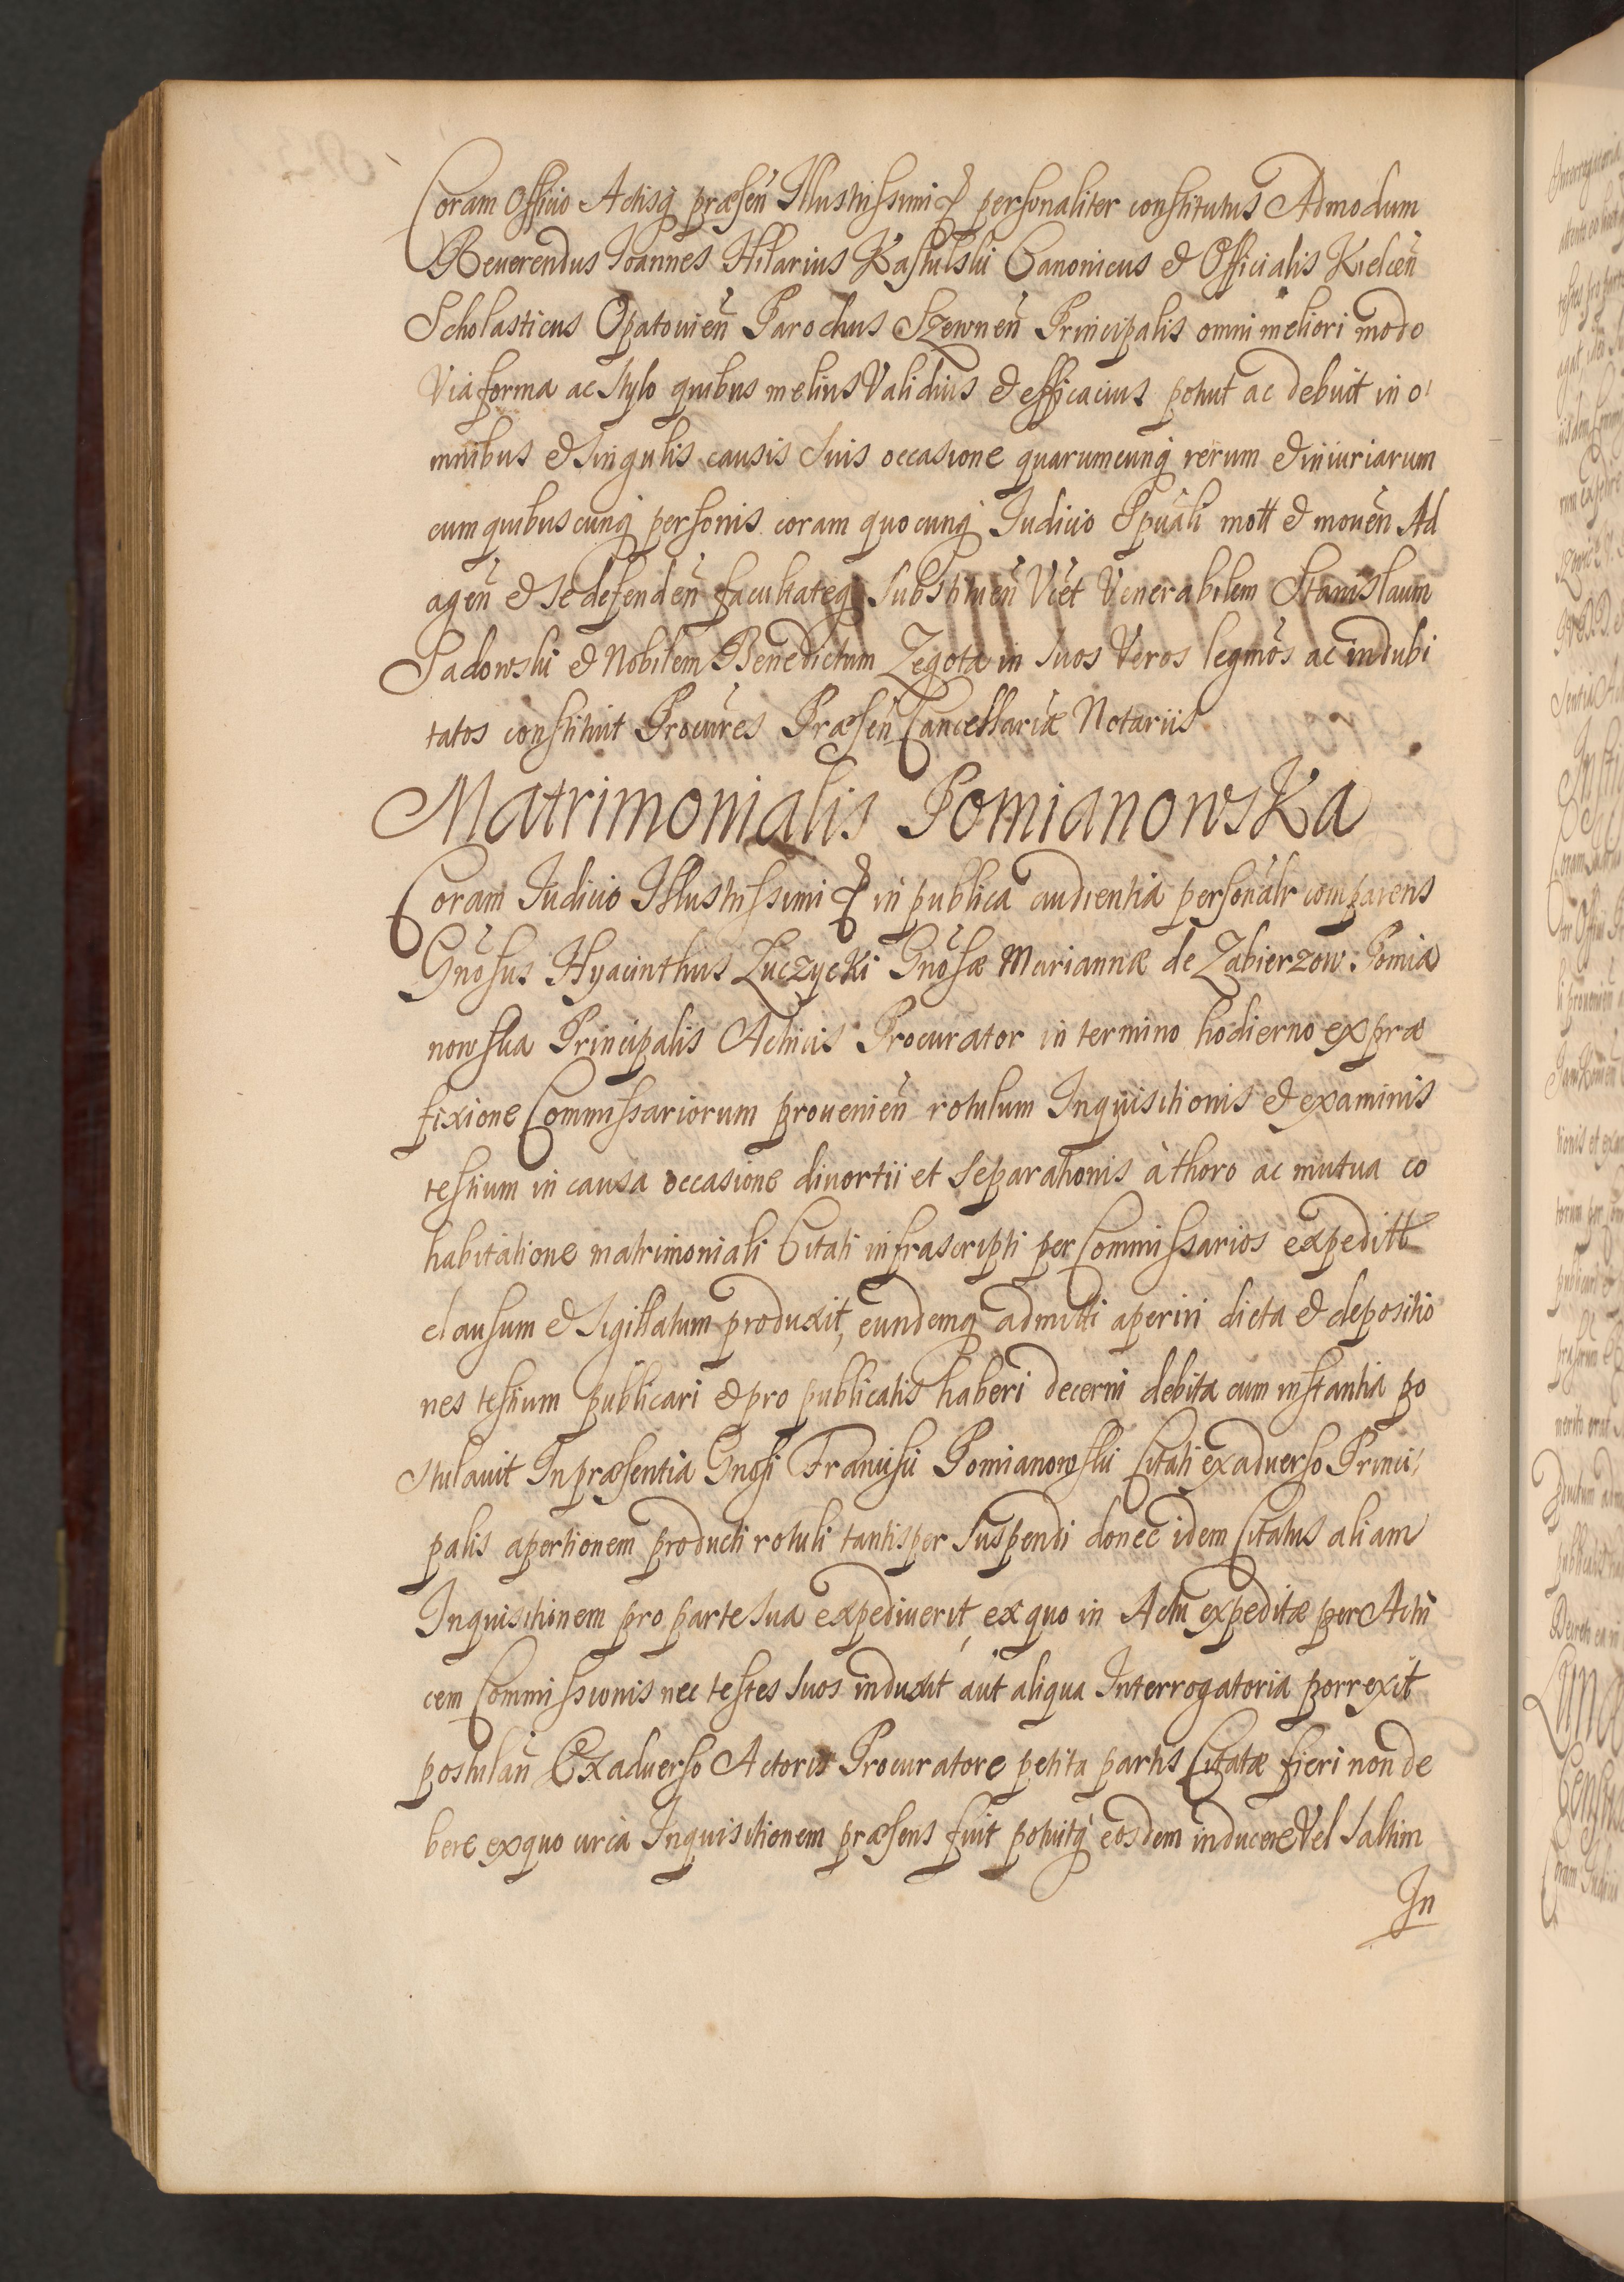 Coram Officio Actisq́ præseñ Illustrissimi & personaliter constitutus Admodum
Reuerendus Ioannes Hilarius Kastulski Canonicus & Officialis Kielceñ
Scholasticus Opatouieñ Parochus Szewneñ Principalis omni meliori modo
Via forma ac stylo quibus melius Validius & efficacius potuit ac debuit in o
mnibus & singulis causis suis occasione quarumcunq́ rerum & iniuriarum
cum quibuscunq́ personis coram quocunq́ Iudicio Spuali mott & moueñ Ad
ageñ & se defendeñ facultateq́ substitueñ Vĕet Venerabilem Stanislaum
Padowski & Nobilem Benedictum Zegota in suos Veros legmos ac indubi
tatos constituit Procures Præseñ Cancellariæ Notariis
Matrimonialis PomianowsKa
Coram Iudicio Illustrissimi & in publica audientia personalr comparens
Gnosus Hyacinthus Łuczycki Gnosæ Mariannæ de Zabierzow Pomia
nowska Principalis Actricis Procurator in termino hodierno ex præ
fixione Commissariorum prouenieñ rotulum Inquisitionis & examinis
testium in causa occasione diuortii et separationis à thoro ac mutua co
habitatione matrimoniali Citati infrascripti per Commissarios expeditt
clausum & sigillatum produxit, eundemq́ admitti aperiri dicta & depositio
nes testium publicari & pro publicatis haberi decerni debita cum instantia po
stulauit In præsentia Gnosi Francisii Pomianowski Citati ex aduerso Princi
palis apertionem producti rotuli tantisper suspendi donec idem Citatus aliam
Inquisitionem pro parte sua expediuerit, ex quo in Actu expeditæ per Actri
cem Commissionis nec testes suos induxit aut aliqua Interrogatoria porrexit
postulañ Ex aduerso Actoris Procuratore petita partis Citatæ fieri non de
bere ex quo circa Inquisitionem præsens fuit potuitq́ eosdem inducere Vel saltim
In